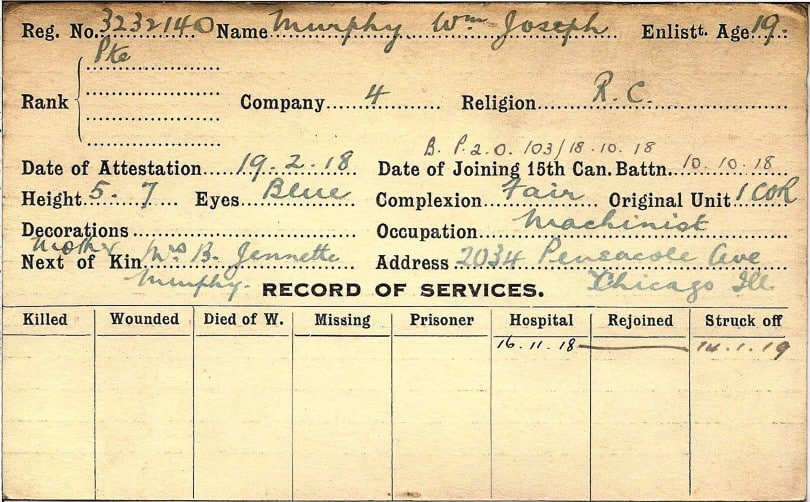 Reg. No. 3232140 Name Murphy Wm Joseph Enlistt. Age 19
Pte
Rank Company 4 Religion R.C.
B. P.2.O. 103/18.10.18
Date of Attestation 19.2.18 Date of Joining 15th Can. Battn. 10.10.18
Height 5-7 Eyes Blue Complexion Fair Original Unit 1 COR
Decorations Occupation Machinist
Mother
Next of Kin Mrs B. Jennette Address 2034 Pensacole Ave
Murphy. Chicago Ill
RECORD OF SERVICES.
Killed Wounded Died of W. Missing Prisoner Hospital Rejoined Struck off
16.11.18 14.1.19